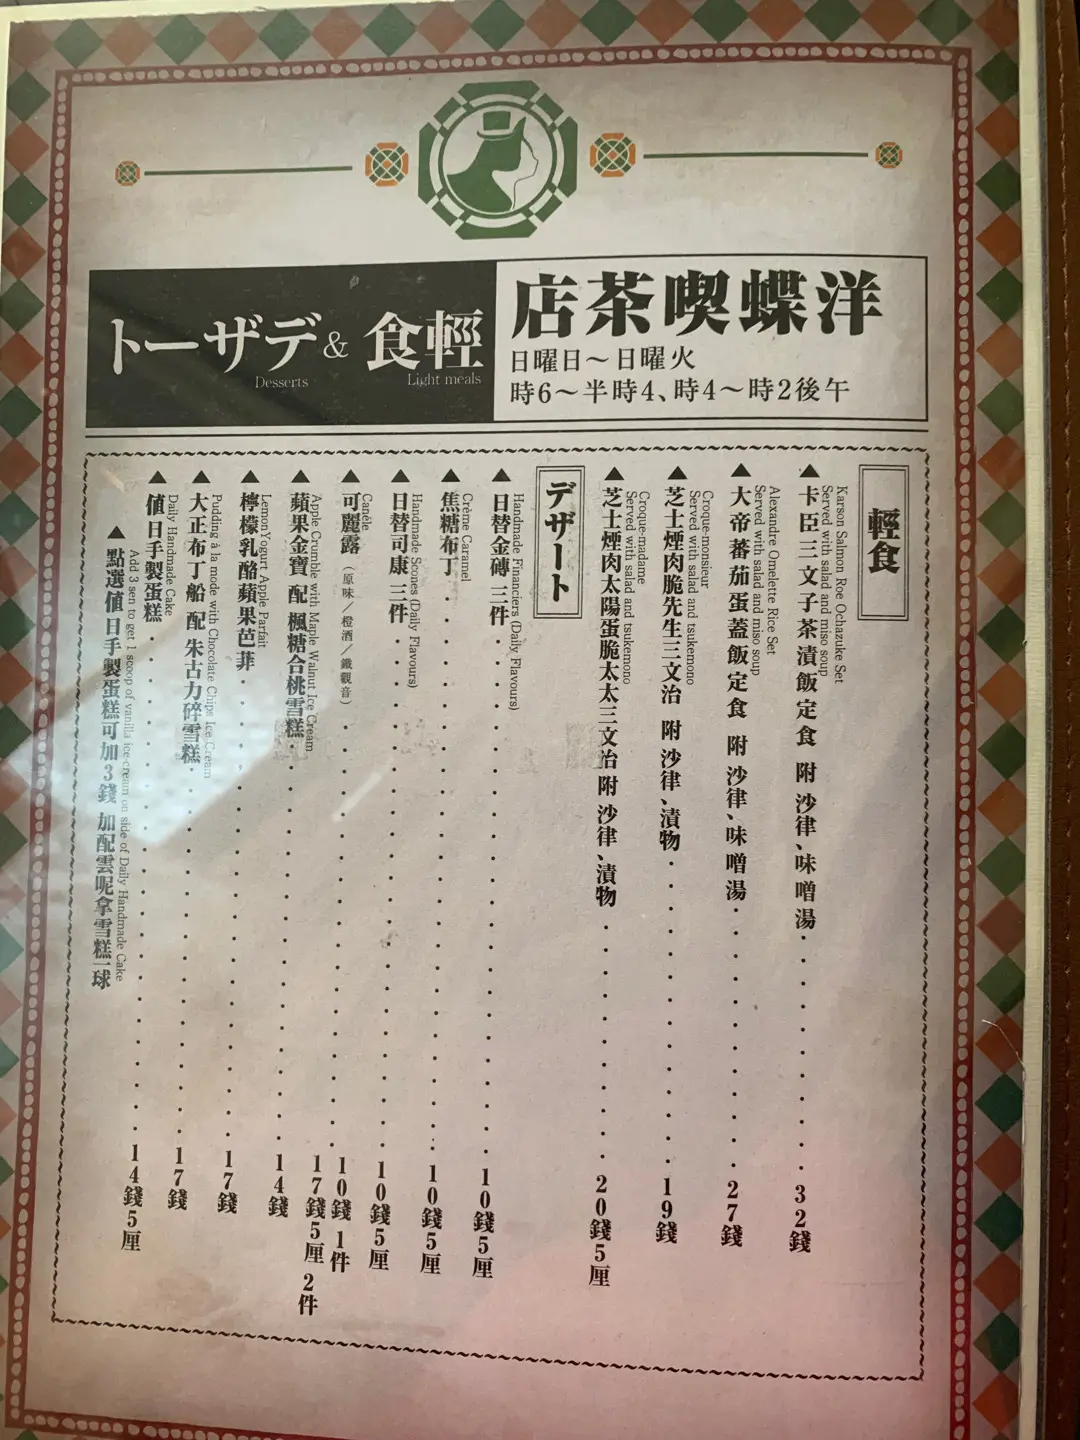 店茶喫蝶洋
日曜日～日曜火
時6～半時4、時4～時2後午
トーザデ & 食輕
Desserts
Light meals
輕食
Karson Salmon Roe Ochazuke Set
Served with salad and miso soup
▲卡臣三文子茶漬飯定食 附 沙律、味噌湯 . . . . . 32錢
Alexandre Omelette Rice Set
Served with salad and miso soup
▲大帝蕃茄蛋蓋飯定食 附 沙律、味噌湯 . . . . . 27錢
Croque-monsieur
Served with salad and tsukemono
▲芝士煙肉脆先生三文治 附 沙律、漬物 . . . . . 19錢
Croque-madame
Served with salad and tsukemono
▲芝士煙肉太陽蛋脆太太三文治 附 沙律、漬物 . . . . . 20錢5厘
デザート
Handmade Financiers (Daily Flavours)
▲日替金磚 三件 . . . . . 10錢5厘
Crème Caramel
▲焦糖布丁 . . . . . 10錢5厘
Handmade Scones (Daily Flavours)
▲日替司康 三件 . . . . . 10錢5厘
Canéle
▲可麗露（原味／橙酒／鐵觀音） . . . . . 10錢 1件
17錢5厘 2件
Apple Crumble with Maple Walnut Ice Cream
▲蘋果金寶 配 楓糖合桃雪糕 . . . . . 14錢
Lemon Yogurt Apple Parfait
▲檸檬乳酪蘋果芭菲 . . . . . 17錢
Pudding à la mode with Chocolate Chips Ice Cream
▲大正布丁船 配 朱古力碎雪糕 . . . . . 17錢
Daily Handmade Cake
▲值日手製蛋糕 . . . . . 14錢5厘
Add 3 sen to get 1 scoop of vanilla ice-cream on side of Daily Handmade Cake
▲點選值日手製蛋糕可加3錢 加配雲呢拿雪糕一球